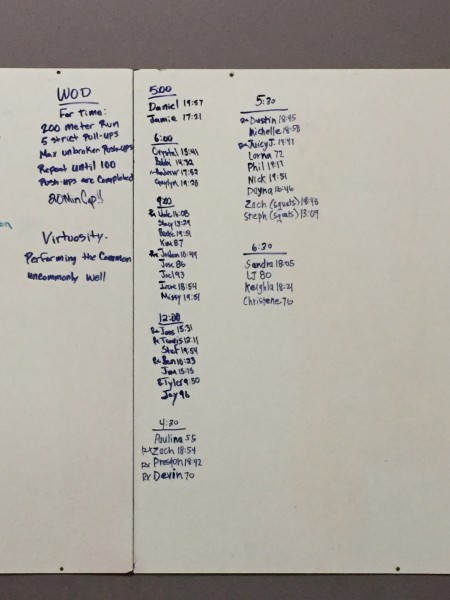 WOD
For Time:
200 meter Run
5 strict Pull-ups
Max unbroken Push-ups
Repeat until 100
Push-ups are Completed
20 Min Cap!!
Virtuosity-
Performing the Common
uncommonly well
5:00
Daniel 19:57
Jamie 17:21
6:00
Crystal 15:41
Bobbi 14:32
Andrew 17:52
19:28
9:00
Rx 16:08
13:29
19:51
Kim 87
Rx Jordan 10:49
Jose 86
Joel 93
18:54
Missy 19:51
12:00
Rx Joss 15:31
Rx Travis 12:11
19:54
Rx Ben 10:23
Jim 15:15
Rx Tyler 9:50
Jay 96
4:30
Paulina 55
Rx Zach 18:54
Rx Preston 18:42
Rx Devin 70
5:30
Rx Dustin 18:45
Michelle 18:58
Rx Juicy J. 19:41
Lorna 72
Phil 19:17
Nick 19:51
Dayna 16:46
Zach (squats) 18:48
Steph (squats) 13:09
6:30
Sandra 18:05
LJ 80
Keighla 18:21
Christene 70